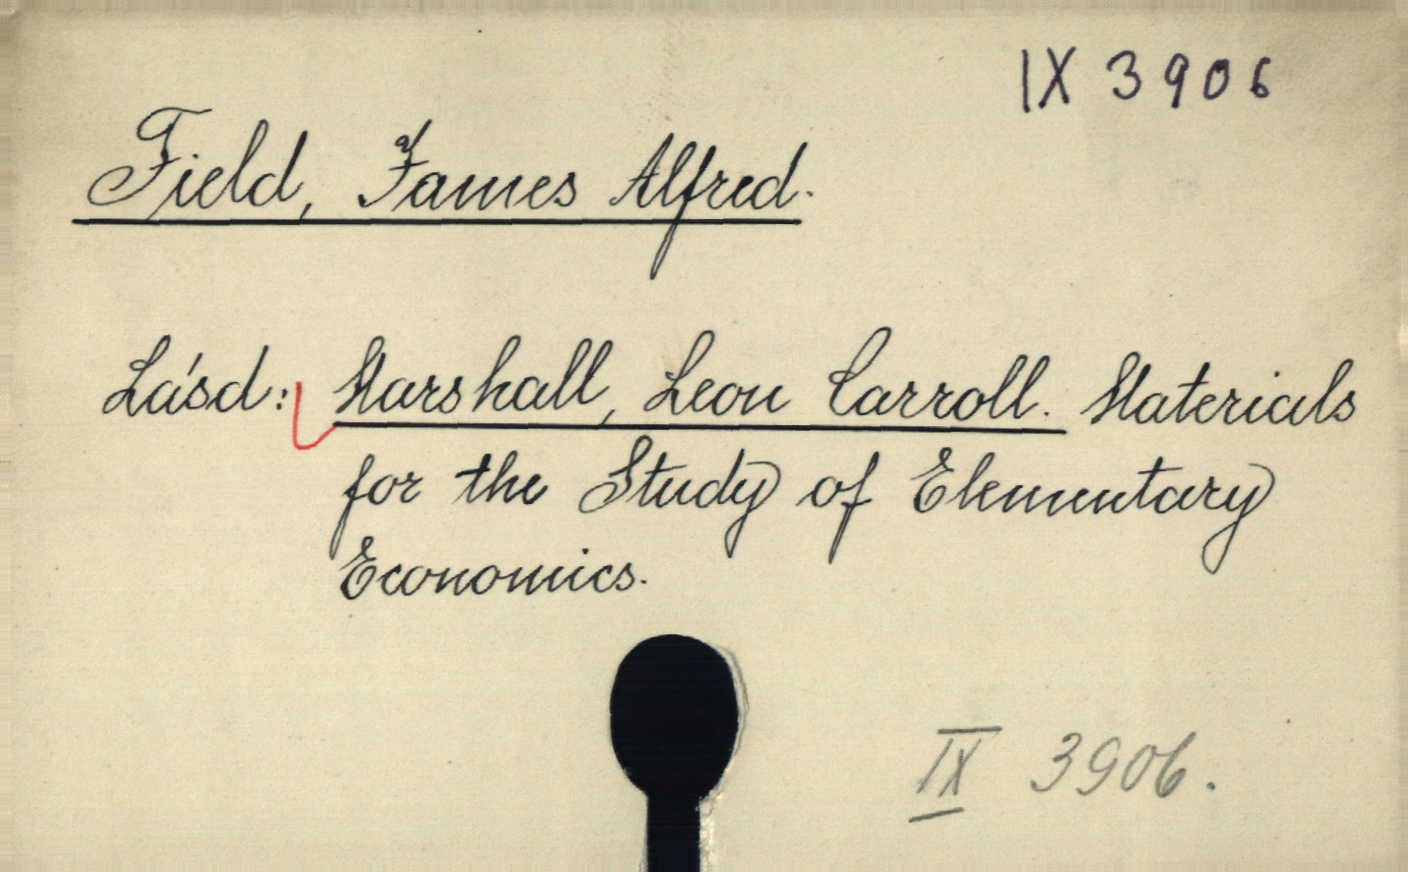 IX 3906
Field, James Alfred.
Lásd: Marshall, Leon Carroll. Materials
for the Study of Elementary
Economics.
IX 3906.